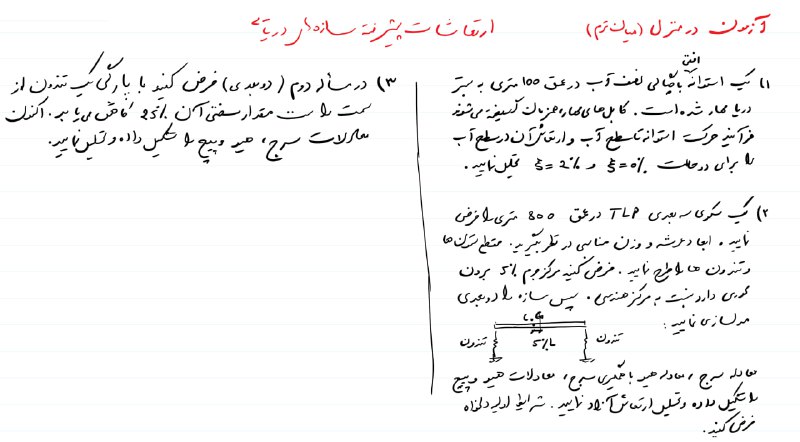 آزمون در منزل (میان ترم) ارتعاشات پیشرفته سازه‌های دریایی
۱) یک استوانه افقی با چگالی نصف آب در عمق 100 متری به بستر
دریا مهار شده است. کابل‌های مهار همزمان گسیخته می‌شوند
فرآیند حرکت استوانه تا سطح آب و ارتعاش آن در سطح آب
را برای دو حالت ξ=0% و ξ=2% تحلیل نمایید.
۲) یک سکوی سه بعدی TLP در عمق 300 متری را فرض
نمایید. ابعاد عرشه و وزن مناسبی در نظر بگیرید. مقطع ستون‌ها
و تندون ها را طرح نمایید. فرض کنید مرکز جرم 5% برون
محوری دارد نسبت به مرکز هندسی. سپس سازه را دو بعدی
مدلسازی نمایید:
C.G
5%L
تندون تندون
معادله سرج، معادله هیو با جفتگیری سرج، معادلات هیو و پیچ
را تشکیل داده و تحلیل ارتعاش آزاد نمایید. شرایط اولیه دلخواه
فرض کنید.
۳) در مسأله دوم (دو بعدی) فرض کنید با پارگی یک تندون از
سمت راست مقدار سختی آن 25% کاهش می‌یابد. اکنون
معادلات سرج، هیو و پیچ را تشکیل داده و تحلیل نمایید.